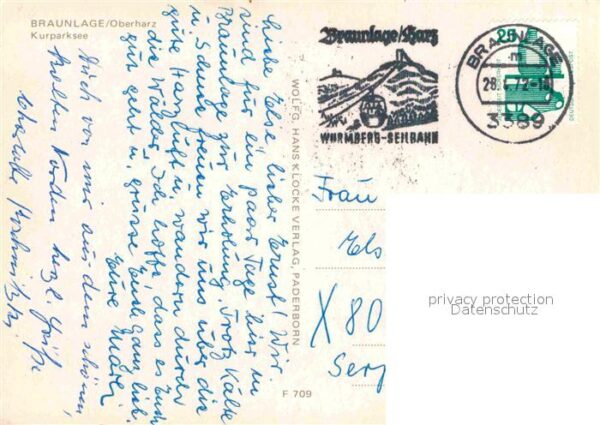 BRAUNLAGE/Oberharz
Kurparksee
Braunlage/Harz
WURMBERG-SEILBAHN
BRAUNLAGE
3389
25
WOLFG. HANS KLOCKE VERLAG, PADERBORN
F 709
Liebe Else, lieber Ernst! Wir
sind für ein paar Tage hier in
Braunlage zur Erholung. Trotz Kälte
u. Schnee freuen wir uns über die
gute Harzluft u. wandern durch
die Wälder. Ich hoffe, dass es Euch
gut geht u. grüsse Euch ganz lieb.
Eure
Auch von mir aus dem schönen,
kalten Norden herzl. Grüße
Frau
Els
X80
Serg
privacy protection
Datenschutz